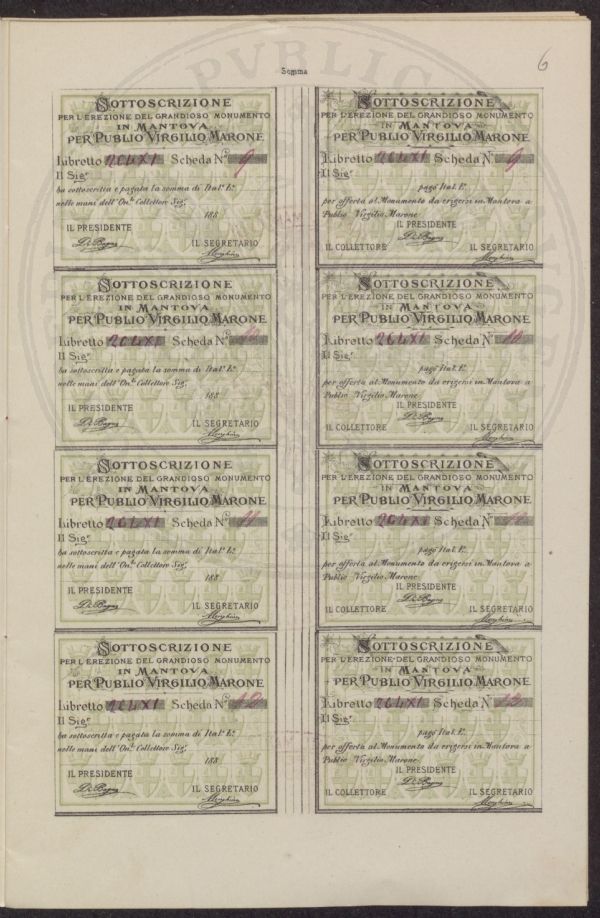 6
Somma
SOTTOSCRIZIONE
PER L'EREZIONE DEL GRANDIOSO MONUMENTO
IN MANTOVA
PER PUBLIO VIRGILIO MARONE
Libretto Scheda N.o 9
Il Sigr
ha sottoscritta e pagata la somma di Ital.e L.e
nelle mani dell'On.le Collettore Sig.r
188
IL PRESIDENTE
IL SEGRETARIO
SOTTOSCRIZIONE
PER L'EREZIONE DEL GRANDIOSO MONUMENTO
IN MANTOVA
PER PUBLIO VIRGILIO MARONE
Libretto Scheda N.o 9
Il Sigr
pagò Ital. L.
per offerta al Monumento da erigersi in Mantova a
Publio Virgilio Marone
IL PRESIDENTE
IL COLLETTORE IL SEGRETARIO
SOTTOSCRIZIONE
PER L'EREZIONE DEL GRANDIOSO MONUMENTO
IN MANTOVA
PER PUBLIO VIRGILIO MARONE
Libretto Scheda N.o 10
Il Sigr
ha sottoscritta e pagata la somma di Ital.e L.e
nelle mani dell'On.le Collettore Sig.r
188
IL PRESIDENTE
IL SEGRETARIO
SOTTOSCRIZIONE
PER L'EREZIONE DEL GRANDIOSO MONUMENTO
IN MANTOVA
PER PUBLIO VIRGILIO MARONE
Libretto Scheda N.o 10
Il Sigr
pagò Ital. L.
per offerta al Monumento da erigersi in Mantova a
Publio Virgilio Marone
IL PRESIDENTE
IL COLLETTORE IL SEGRETARIO
SOTTOSCRIZIONE
PER L'EREZIONE DEL GRANDIOSO MONUMENTO
IN MANTOVA
PER PUBLIO VIRGILIO MARONE
Libretto Scheda N.o 11
Il Sigr
ha sottoscritta e pagata la somma di Ital.e L.e
nelle mani dell'On.le Collettore Sig.r
188
IL PRESIDENTE
IL SEGRETARIO
SOTTOSCRIZIONE
PER L'EREZIONE DEL GRANDIOSO MONUMENTO
IN MANTOVA
PER PUBLIO VIRGILIO MARONE
Libretto Scheda N.o
Il Sigr
pagò Ital. L.
per offerta al Monumento da erigersi in Mantova a
Publio Virgilio Marone
IL PRESIDENTE
IL COLLETTORE IL SEGRETARIO
SOTTOSCRIZIONE
PER L'EREZIONE DEL GRANDIOSO MONUMENTO
IN MANTOVA
PER PUBLIO VIRGILIO MARONE
Libretto Scheda N.o 12
Il Sigr
ha sottoscritta e pagata la somma di Ital.e L.e
nelle mani dell'On.le Collettore Sig.r
188
IL PRESIDENTE
IL SEGRETARIO
SOTTOSCRIZIONE
PER L'EREZIONE DEL GRANDIOSO MONUMENTO
IN MANTOVA
PER PUBLIO VIRGILIO MARONE
Libretto Scheda N.o 12
Il Sigr
pagò Ital. L.
per offerta al Monumento da erigersi in Mantova a
Publio Virgilio Marone
IL PRESIDENTE
IL COLLETTORE IL SEGRETARIO